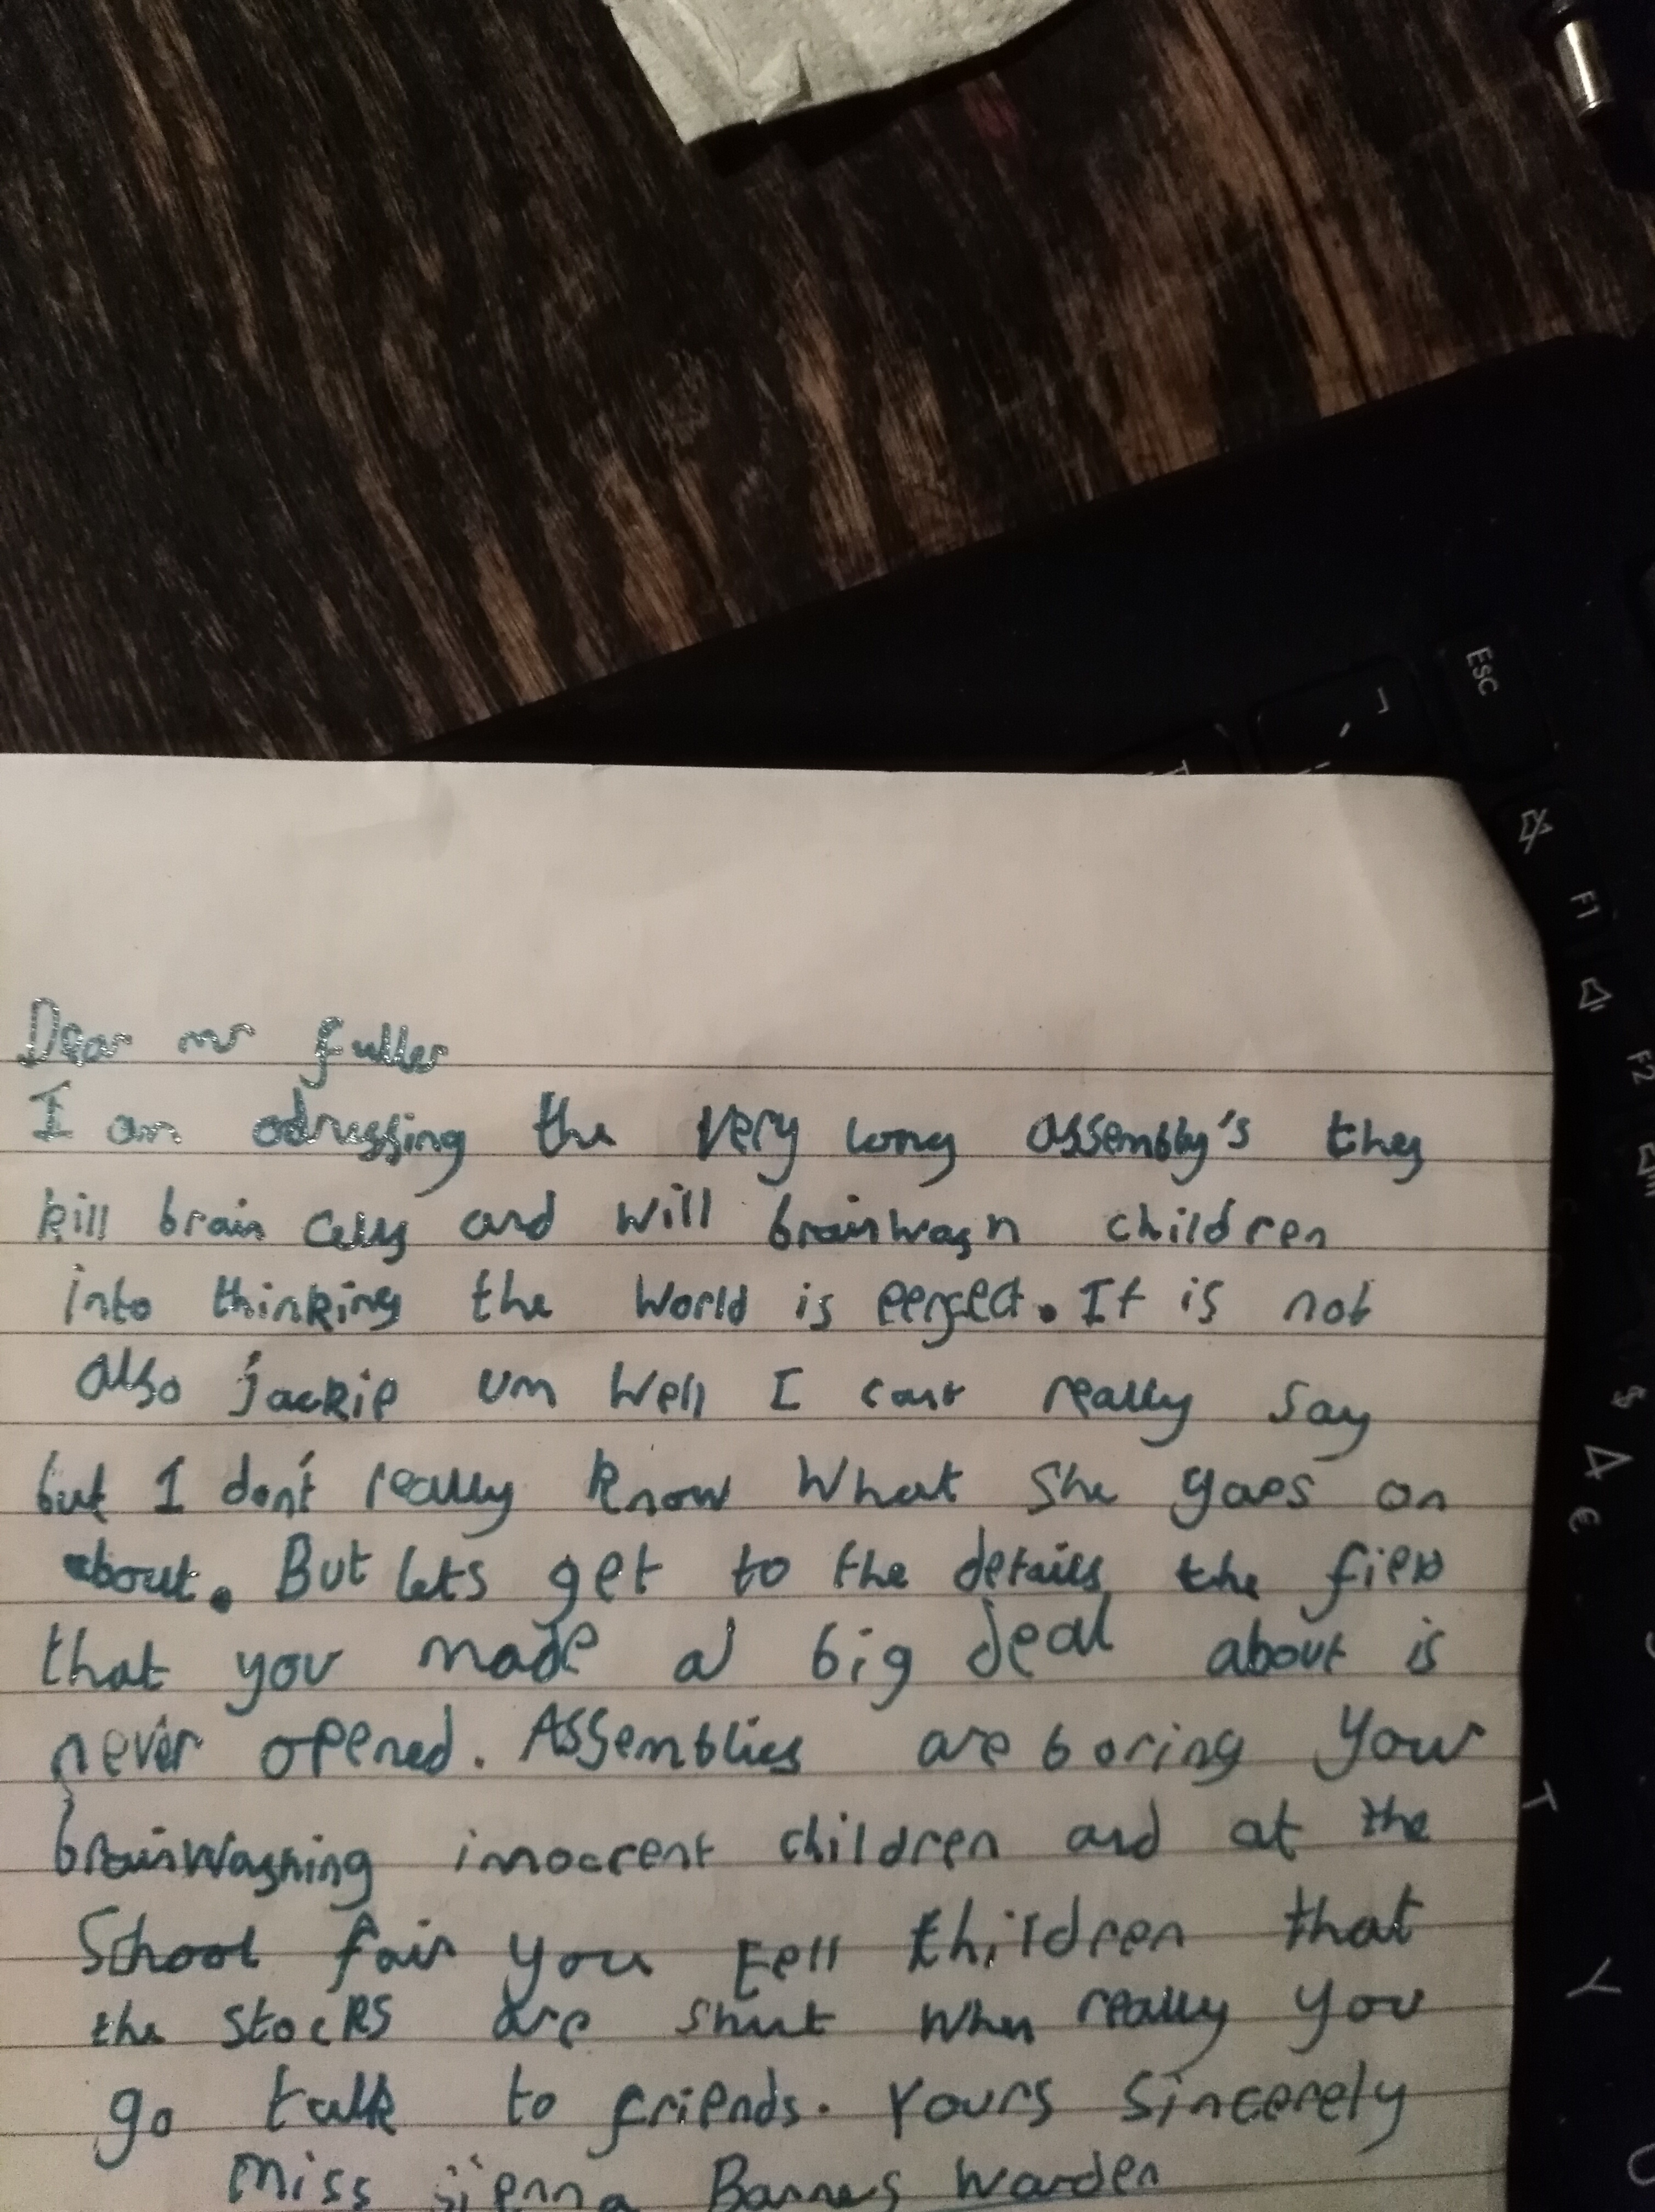 Dear mr fuller
I am adressing the very long assembly's they
kill brain cells and will brainwash children
into thinking the world is perfect. It is not
also jackie um well I cant really say
but I don't really know what she goes on
about. But lets get to the details the field
that you made a big deal about is
never opened. Assemblies are boring your
brainwashing innocent children and at the
School fair you tell children that
the stocks are shut when really you
go talk to friends. Yours Sincerely
Miss sienna Barnes Warden
ESC
F1
F2
$
4
€
T
Y